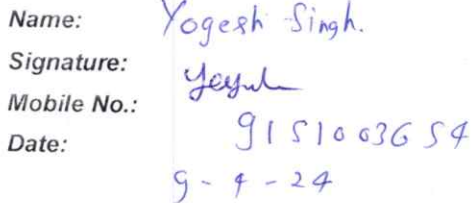 Name: Yogesh Singh.
Signature:
Mobile No.: 9151003654
Date: 9-4-24